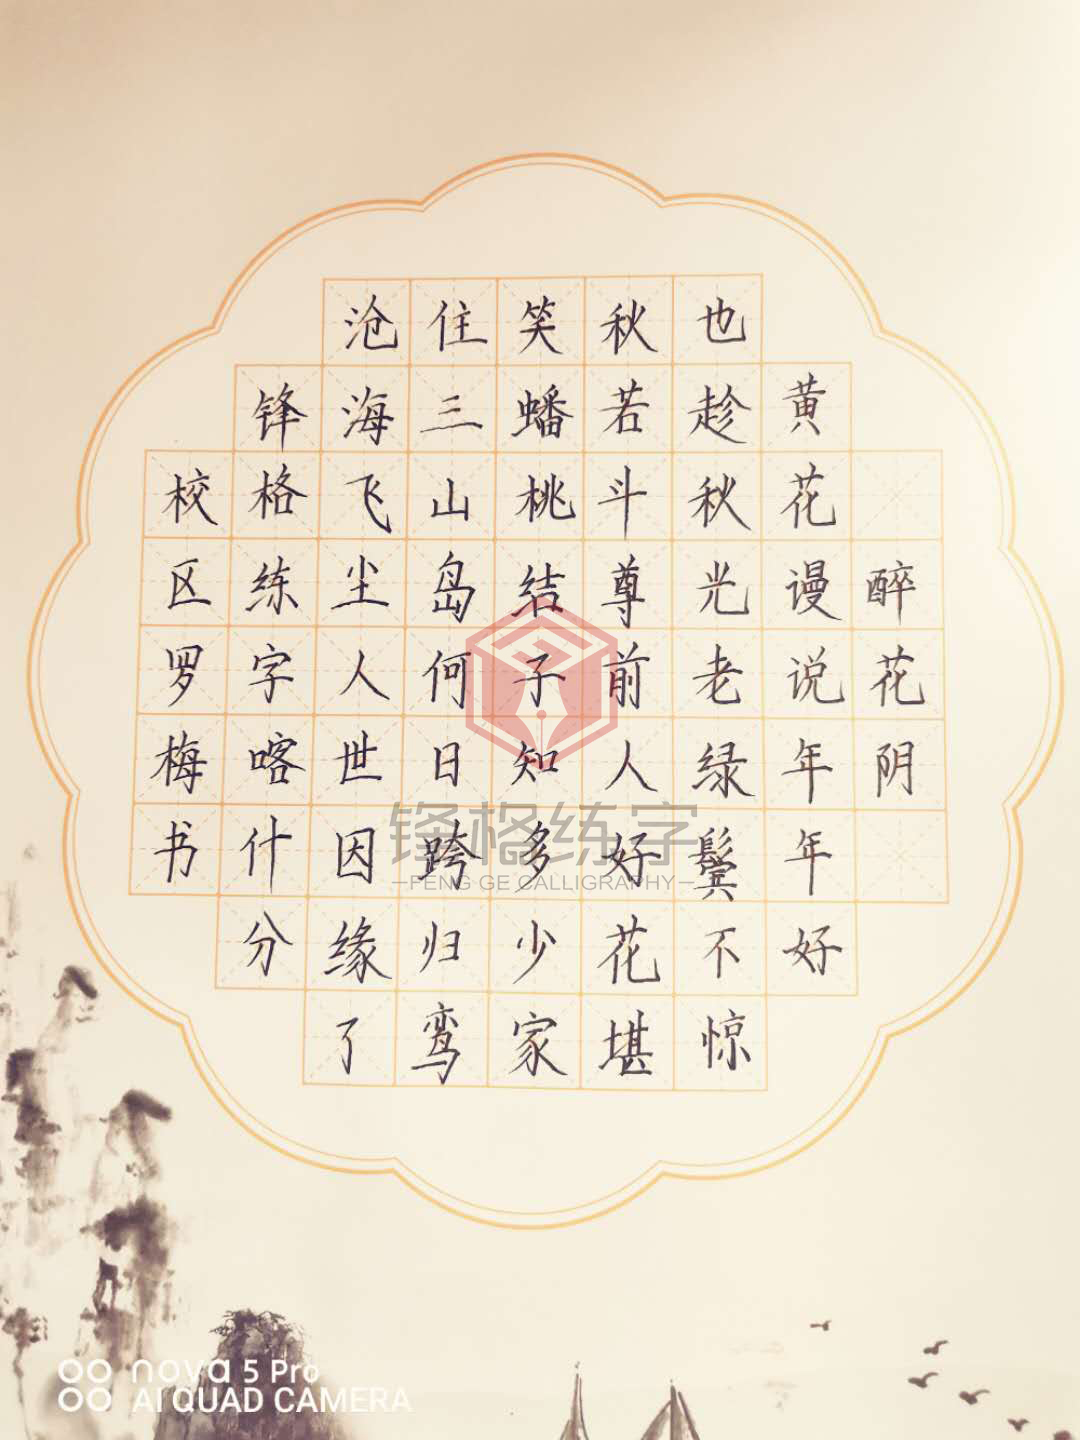 醉花阴
黄花谩说年年好
也趁秋光老绿鬓不惊
秋若斗尊前人好花堪
笑蟠桃结子知多少家
住三山岛何日跨归鸾
沧海飞尘人世因缘了
锋格练字喀什分
校区罗梅书
锋格练字
FENG GE CALLIGRAPHY
nova 5 Pro
AI QUAD CAMERA